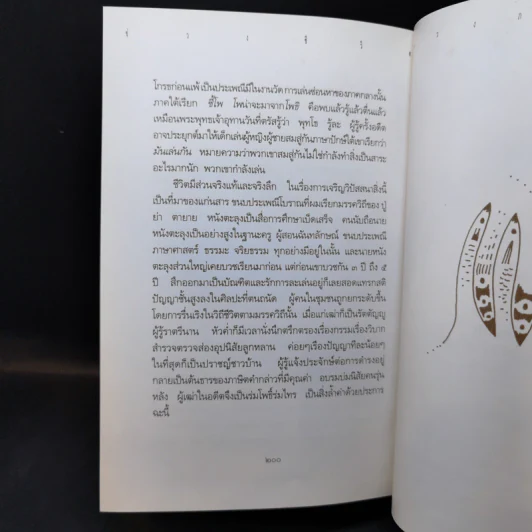 โกรธก่อนแพ้ เป็นประเพณีมีในงานวัด การเล่นซ่อนหาของภาคกลางนั้น
ภาคใต้เรียก ขี้โพ โพน่าจะมาจากโพธิ คือพบแล้วรู้แล้วตื่นแล้ว
เหมือนพระพุทธเจ้าอุทานวันที่ตรัสรู้ว่า พุทโธ รู้ละ ผู้รู้ครั้งอดีต
อาจประยุกต์มาให้เด็กเล่นผู้หญิงผู้ชายสมสู่กันภาษาปักษ์ใต้เขาเรียกว่า
มันเล่นกัน หมายความว่าพวกเขาสมสู่กันไม่ใช่กำลังทำสิ่งเป็นสาระ
อะไรมากนัก พวกเขากำลังเล่น
ชีวิตมีส่วนจริงแท้และจริงลึก ในเรื่องการเจริญวิปัสสนาสิ่งนี้
เป็นที่มาของแก่นสาร ขนบประเพณีโบราณที่ผมเรียกมรรควิถีของ ปู่
ย่า ตายาย หนังตะลุงเป็นสื่อการศึกษาเบ็ดเสร็จ คนนับถือนาย
หนังตะลุงเป็นอย่างสูงในฐานะครู ผู้สอนฉันทลักษณ์ ขนบประเพณี
ภาษาศาสตร์ ธรรมะ จริยธรรม ทุกอย่างมีอยู่ในนั้น และนายหนัง
ตะลุงส่วนใหญ่เคยบวชเรียนมาก่อน แต่ก่อนเขาบวชกัน ๓ ปี ถึง ๕
ปี สึกออกมาเป็นบัณฑิตและรักการละเล่นอยู่ก็เลยสอดแทรกสติ
ปัญญาชั้นสูงลงในศิลปะที่ตนถนัด ผู้คนในชุมชนถูกยกระดับขึ้น
โดยการรื่นเริงในวิถีชีวิตตามมรรควิถีนั้น เมื่อแก่เฒ่าก็เป็นรัตตัญญู
ผู้รู้ราตรีนาน หัวค่ำก็มีเวลานั่งนึกตรึกตรองเรื่องกรรมเรื่องวิบาก
สำรวจตรวจส่องอุปนิสัยลูกหลาน ค่อยๆเรืองปัญญาทีละน้อยๆ
ในที่สุดก็เป็นปราชญ์ชาวบ้าน ผู้รู้แจ้งประจักษ์ต่อการดำรงอยู่
กลายเป็นต้นธารของภาษิตคำกล่าวที่มีคุณค่า อบรมบ่มนิสัยคนรุ่น
หลัง ผู้เฒ่าในอดีตจึงเป็นร่มโพธิ์ร่มไทร เป็นสิ่งล้ำค่าด้วยประการ
ฉะนี้
๒๐๐